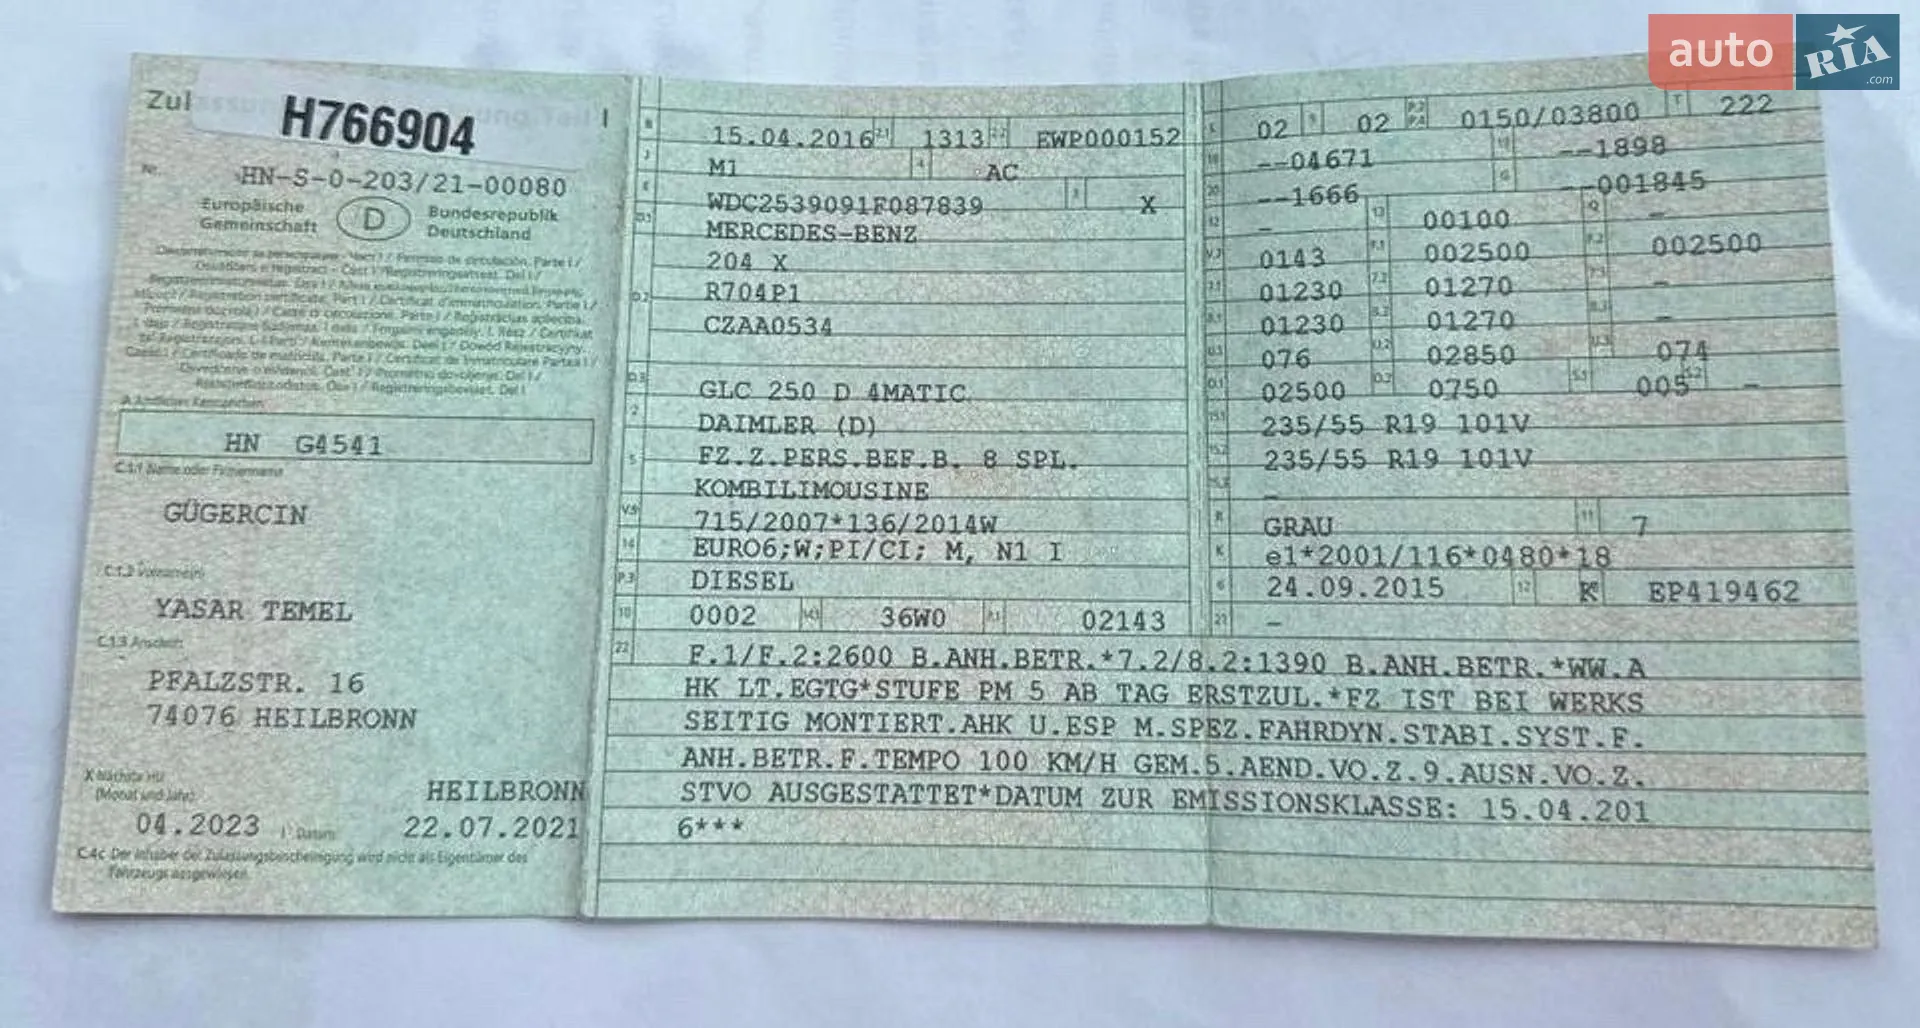 auto RIA .com
Zul
H766904
Nr. HN-S-0-203/21-00080
Europäische Gemeinschaft D Bundesrepublik Deutschland
HN G4541
C.1.1 Name oder Firmenname
GÜGERCIN
C.1.2 Vorname(n)
YASAR TEMEL
C.1.3 Anschrift
PFALZSTR. 16
74076 HEILBRONN
X Nächste HU (Monat und Jahr)
HEILBRONN
04.2023 I Datum 22.07.2021
C.4c Der Inhaber der Zulassungsbescheinigung wird nicht als Eigentümer des
Fahrzeugs ausgewiesen.
B 15.04.2016 2.1 1313 2.2 EWP000152
J M1 4 AC
E WDC2539091F087839 3 X
D.1 MERCEDES-BENZ
204 X
D.2 R704P1
CZAA0534
D.3 GLC 250 D 4MATIC
2 DAIMLER (D)
5 FZ.Z.PERS.BEF.B. 8 SPL.
KOMBILIMOUSINE
V.9 715/2007*136/2014W
14 EURO6;W;PI/CI; M, N1 I
P.3 DIESEL
10 0002 14.1 36W0 P.1 02143
22 F.1/F.2:2600 B.ANH.BETR.*7.2/8.2:1390 B.ANH.BETR.*WW.A
HK LT.EGTG*STUFE PM 5 AB TAG ERSTZUL.*FZ IST BEI WERKS
SEITIG MONTIERT.AHK U.ESP M.SPEZ.FAHRDYN.STABI.SYST.F.
ANH.BETR.F.TEMPO 100 KM/H GEM.5.AEND.VO.Z.9.AUSN.VO.Z.
STVO AUSGESTATTET*DATUM ZUR EMISSIONSKLASSE: 15.04.201
6***
L 02 9 02 P.2 P.4 0150/03800 T 222
18 --04671 19 --1898
20 --1666 G --001845
12 - 13 00100 Q -
V.7 0143 F.1 002500 F.2 002500
7.1 01230 7.2 01270 7.3 -
8.1 01230 8.2 01270 8.3 -
U.1 076 U.2 02850 U.3 074
O.1 02500 O.2 0750 S.1 005 S.2 -
15.1 235/55 R19 101V
15.2 235/55 R19 101V
15.3 -
R GRAU 11 7
K e1*2001/116*0480*18
6 24.09.2015 17 K 16 EP419462
21 -